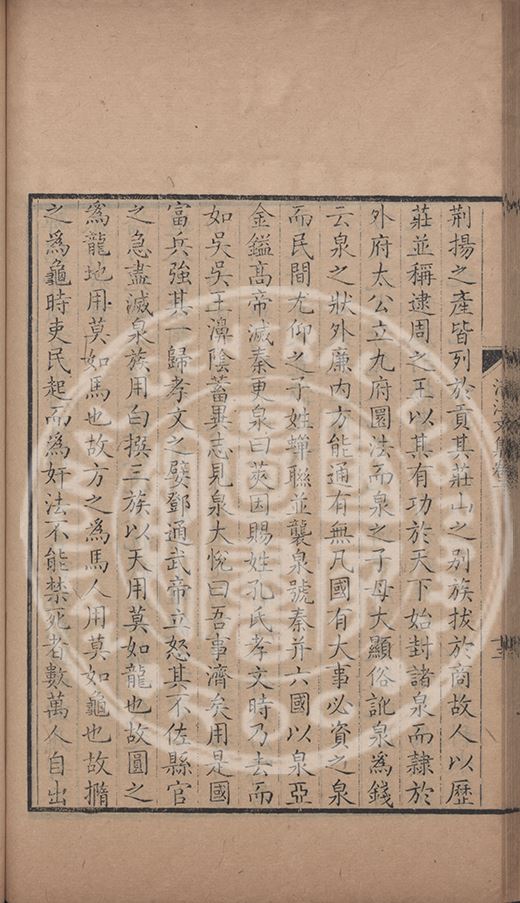 荆揚之產皆列於貢其莊山之別族拔於商故人以歷
莊並稱逮周之王以其有功於天下始封諸泉而隸於
外府太公立九府圜法而泉之子母大顯俗訛泉爲錢
云泉之狀外廉内方能通有無凡國有大事必資之泉
而民間尤仰之子姓蟬聯並襲泉號秦并六國以泉亞
金鎰高帝滅秦更泉曰莢因賜姓孔氏孝文時乃去而
如吳吳王濞陰蓄異志見泉大悅曰吾事濟矣用是國
富兵強其一歸孝文之嬖鄧通武帝立怒其不佐縣官
之急盡滅泉族用白撰三族以天用莫如龍也故圓之
爲龍地用莫如馬也故方之爲馬人用莫如龜也故撱
之爲龜時吏民起而爲奸法不能禁死者數萬人自出